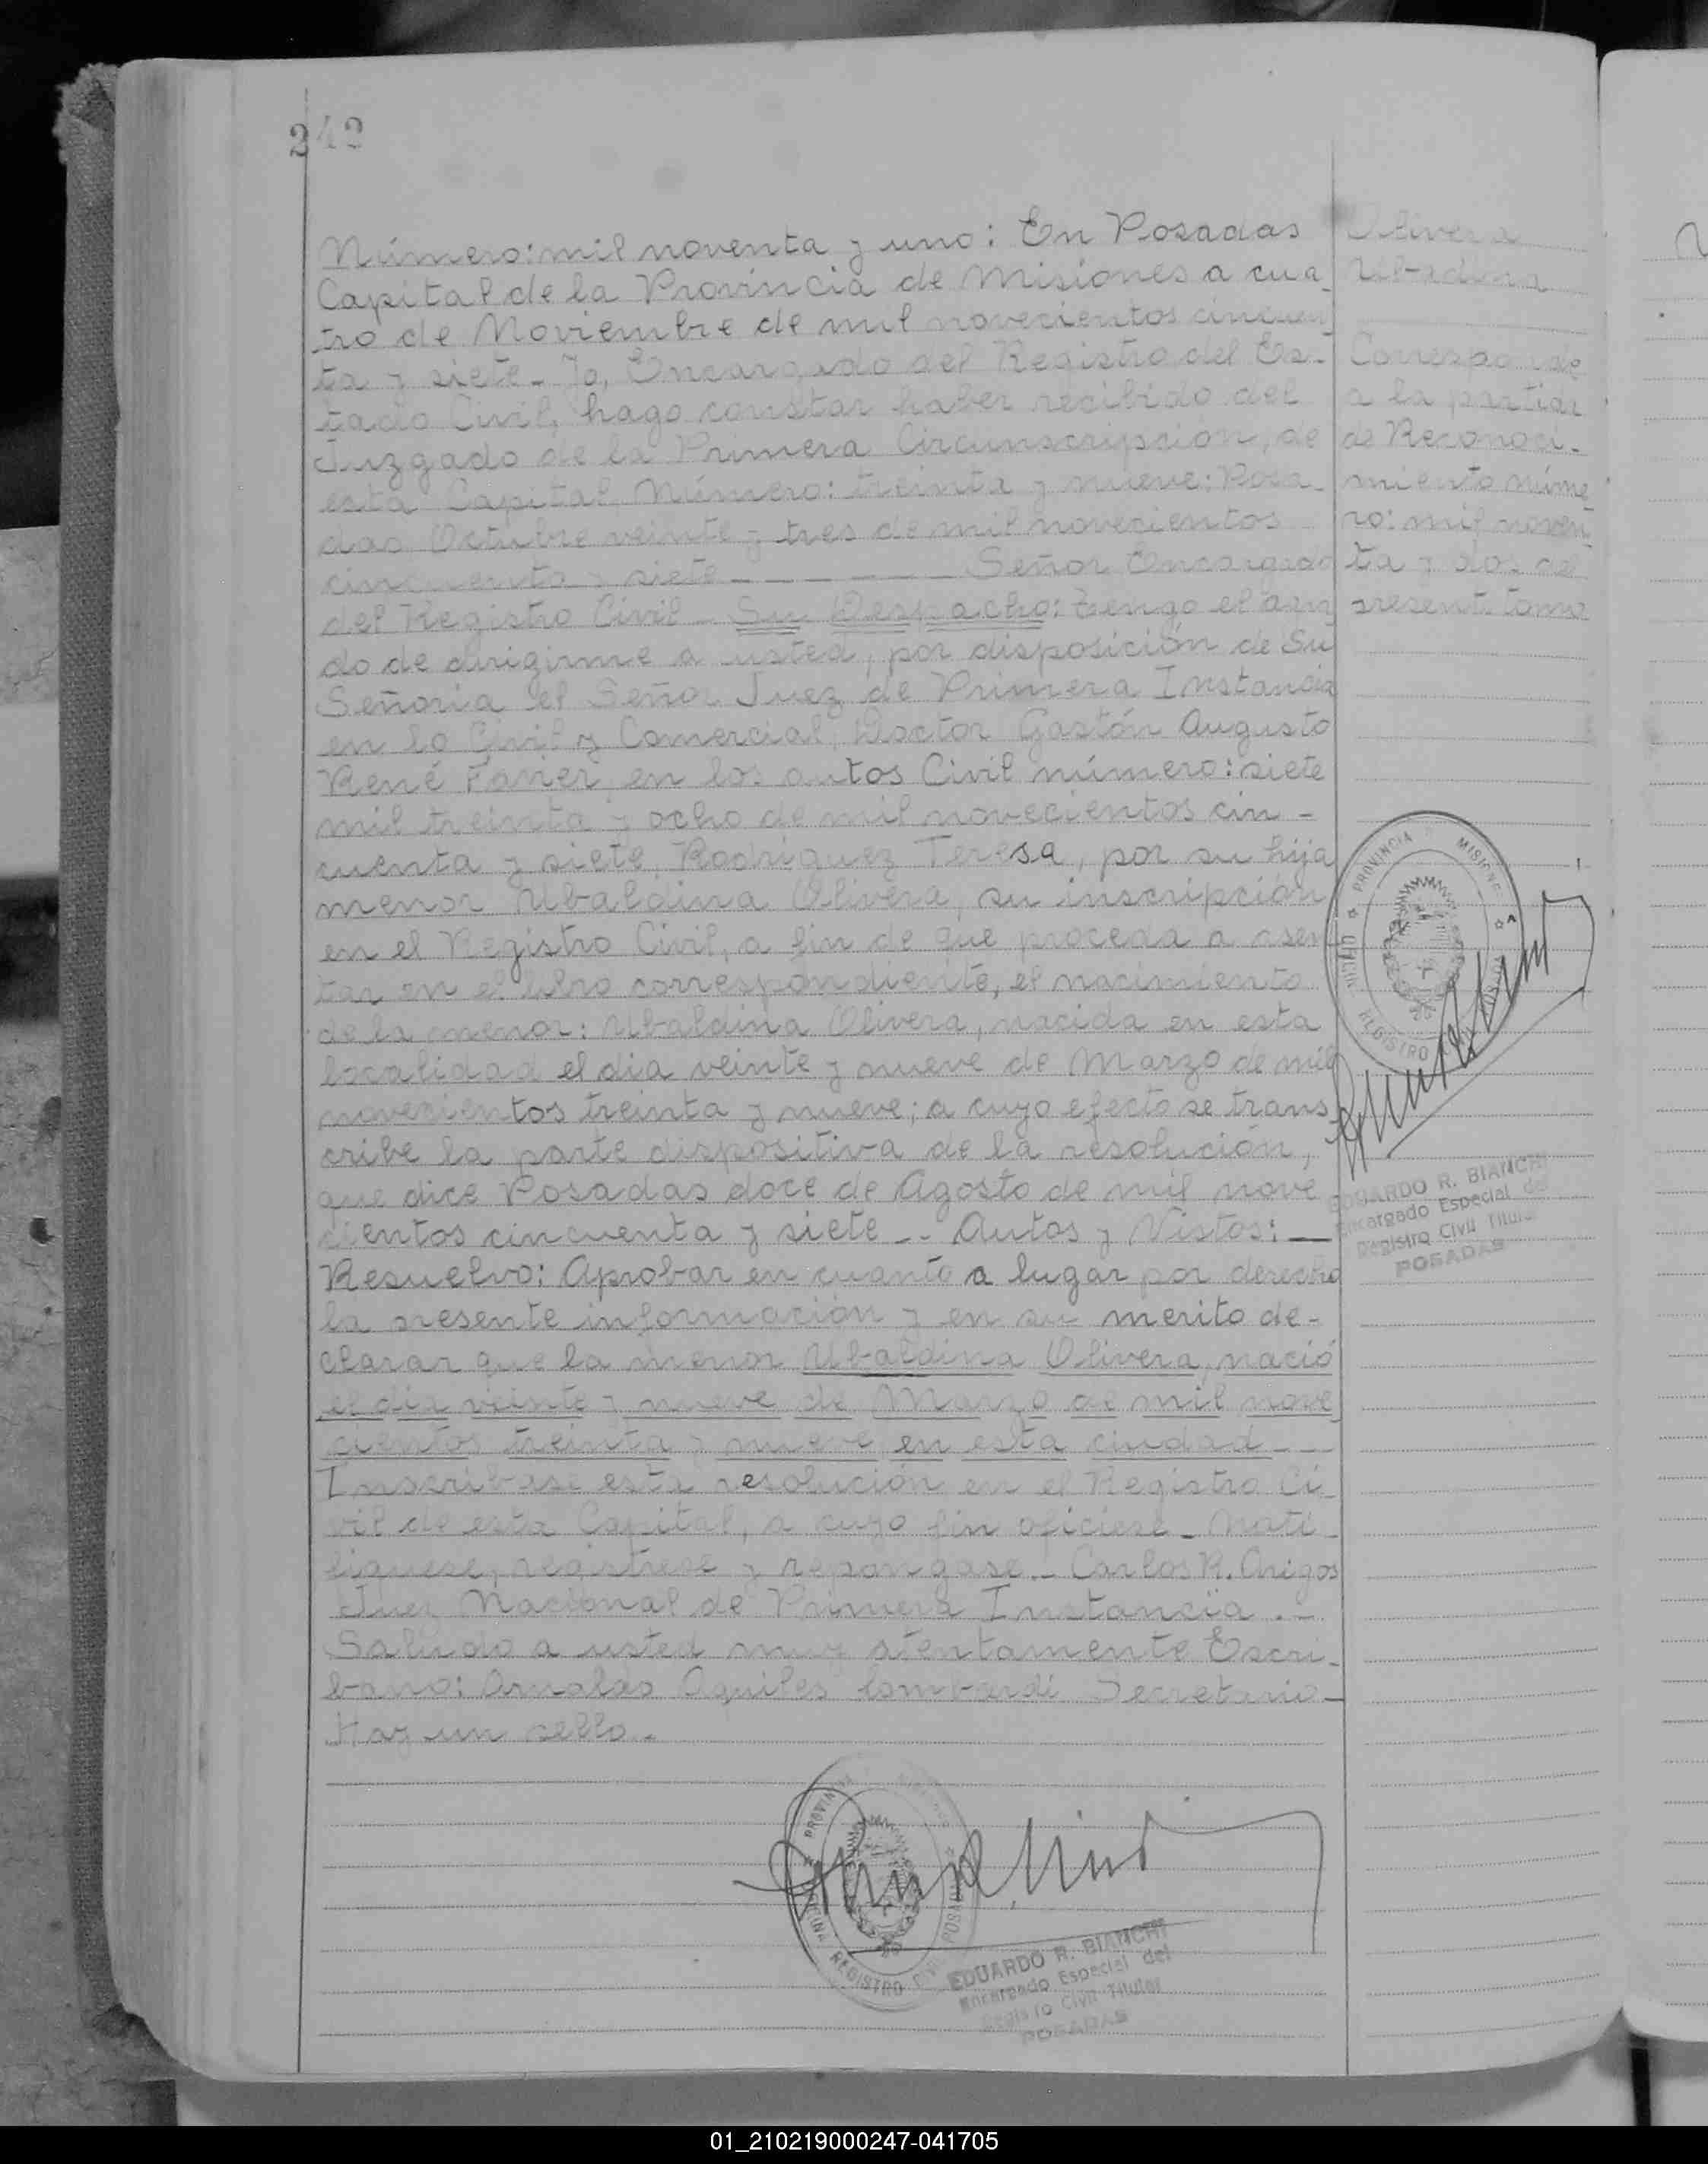 242
Número: mil noventa y uno: En Posadas
Capital de la Provincia de Misiones a cua_
tro de Noviembre de mil novecientos cincuen
ta y siete_ Yo, Encargado del Registro del Es_
tado Civil, hago constar haber recibido del
Juzgado de la Primera Circunscripción, de
esta Capital Número: treinta y nueve: Posa_
das Octubre veinte y tres de mil novecientos
cincuenta y siete _ _ _ _ _ _ Señor Encargado
del Registro Civil _ Su Despacho: Tengo el agra
do de dirigirme a usted, por disposición de Su
Señoria el Señor Juez de Primera Instancia
en lo Civil y Comercial, Doctor Gastón Augusto
René en los autos Civil número: siete
mil treinta y ocho de mil novecientos cin_
cuenta y siete, Rodriguez Teresa, por su hija
menor Ubaldina Olivera, su inscripción
en el Registro Civil, a fin de que proceda a asen
tar en el libro correspondiente, el nacimiento
de la menor: Ubaldina Olivera, nacida en esta
localidad el dia veinte y nueve de Marzo de mil
novecientos treinta y nueve; a cuyo efecto se trans
cribe la parte dispositiva de la resolución,
que dice Posadas doce de Agosto de mil nove
cientos cincuenta y siete _.. Autos y Vistos: _
Resuelvo: Aprobar en cuanto a lugar por derecho
la presente información y en su merito de-
clarar que la menor Ubaldina Olivera, nació
el dia veinte y nueve de Marzo de mil nove
cientos treinta y nueve en esta ciudad _ _
Inscribase esta resolución en el Registro Ci_
vil de esta Capital, a cuyo fin oficiese_ Noti_
fiquese, registrese y repongase_ Carlos R. Arigos
Juez Nacional de Primera Instancia._
Saludo a usted muy atentamente Escri_
bano: Arnaldo Aquiles Lombardi Secretario_
Hay un sello._
Olivera
Ubaldina
Corresponde
a la partida
de Reconoci_
miento núme
ro: mil noven
ta y dos del
presente tomo
PROVINCIA MISIONES
OFICINA REGISTRO CIVIL POSADAS
EDUARDO R. BIANCHI
Encargado Especial del
Registro Civil Titular
POSADAS
PROVINCIA
OFICINA REGISTRO CIVIL POSADAS
EDUARDO R. BIANCHI
Encargado Especial del
Registro Civil Titular
POSADAS
01_210219000247-041705